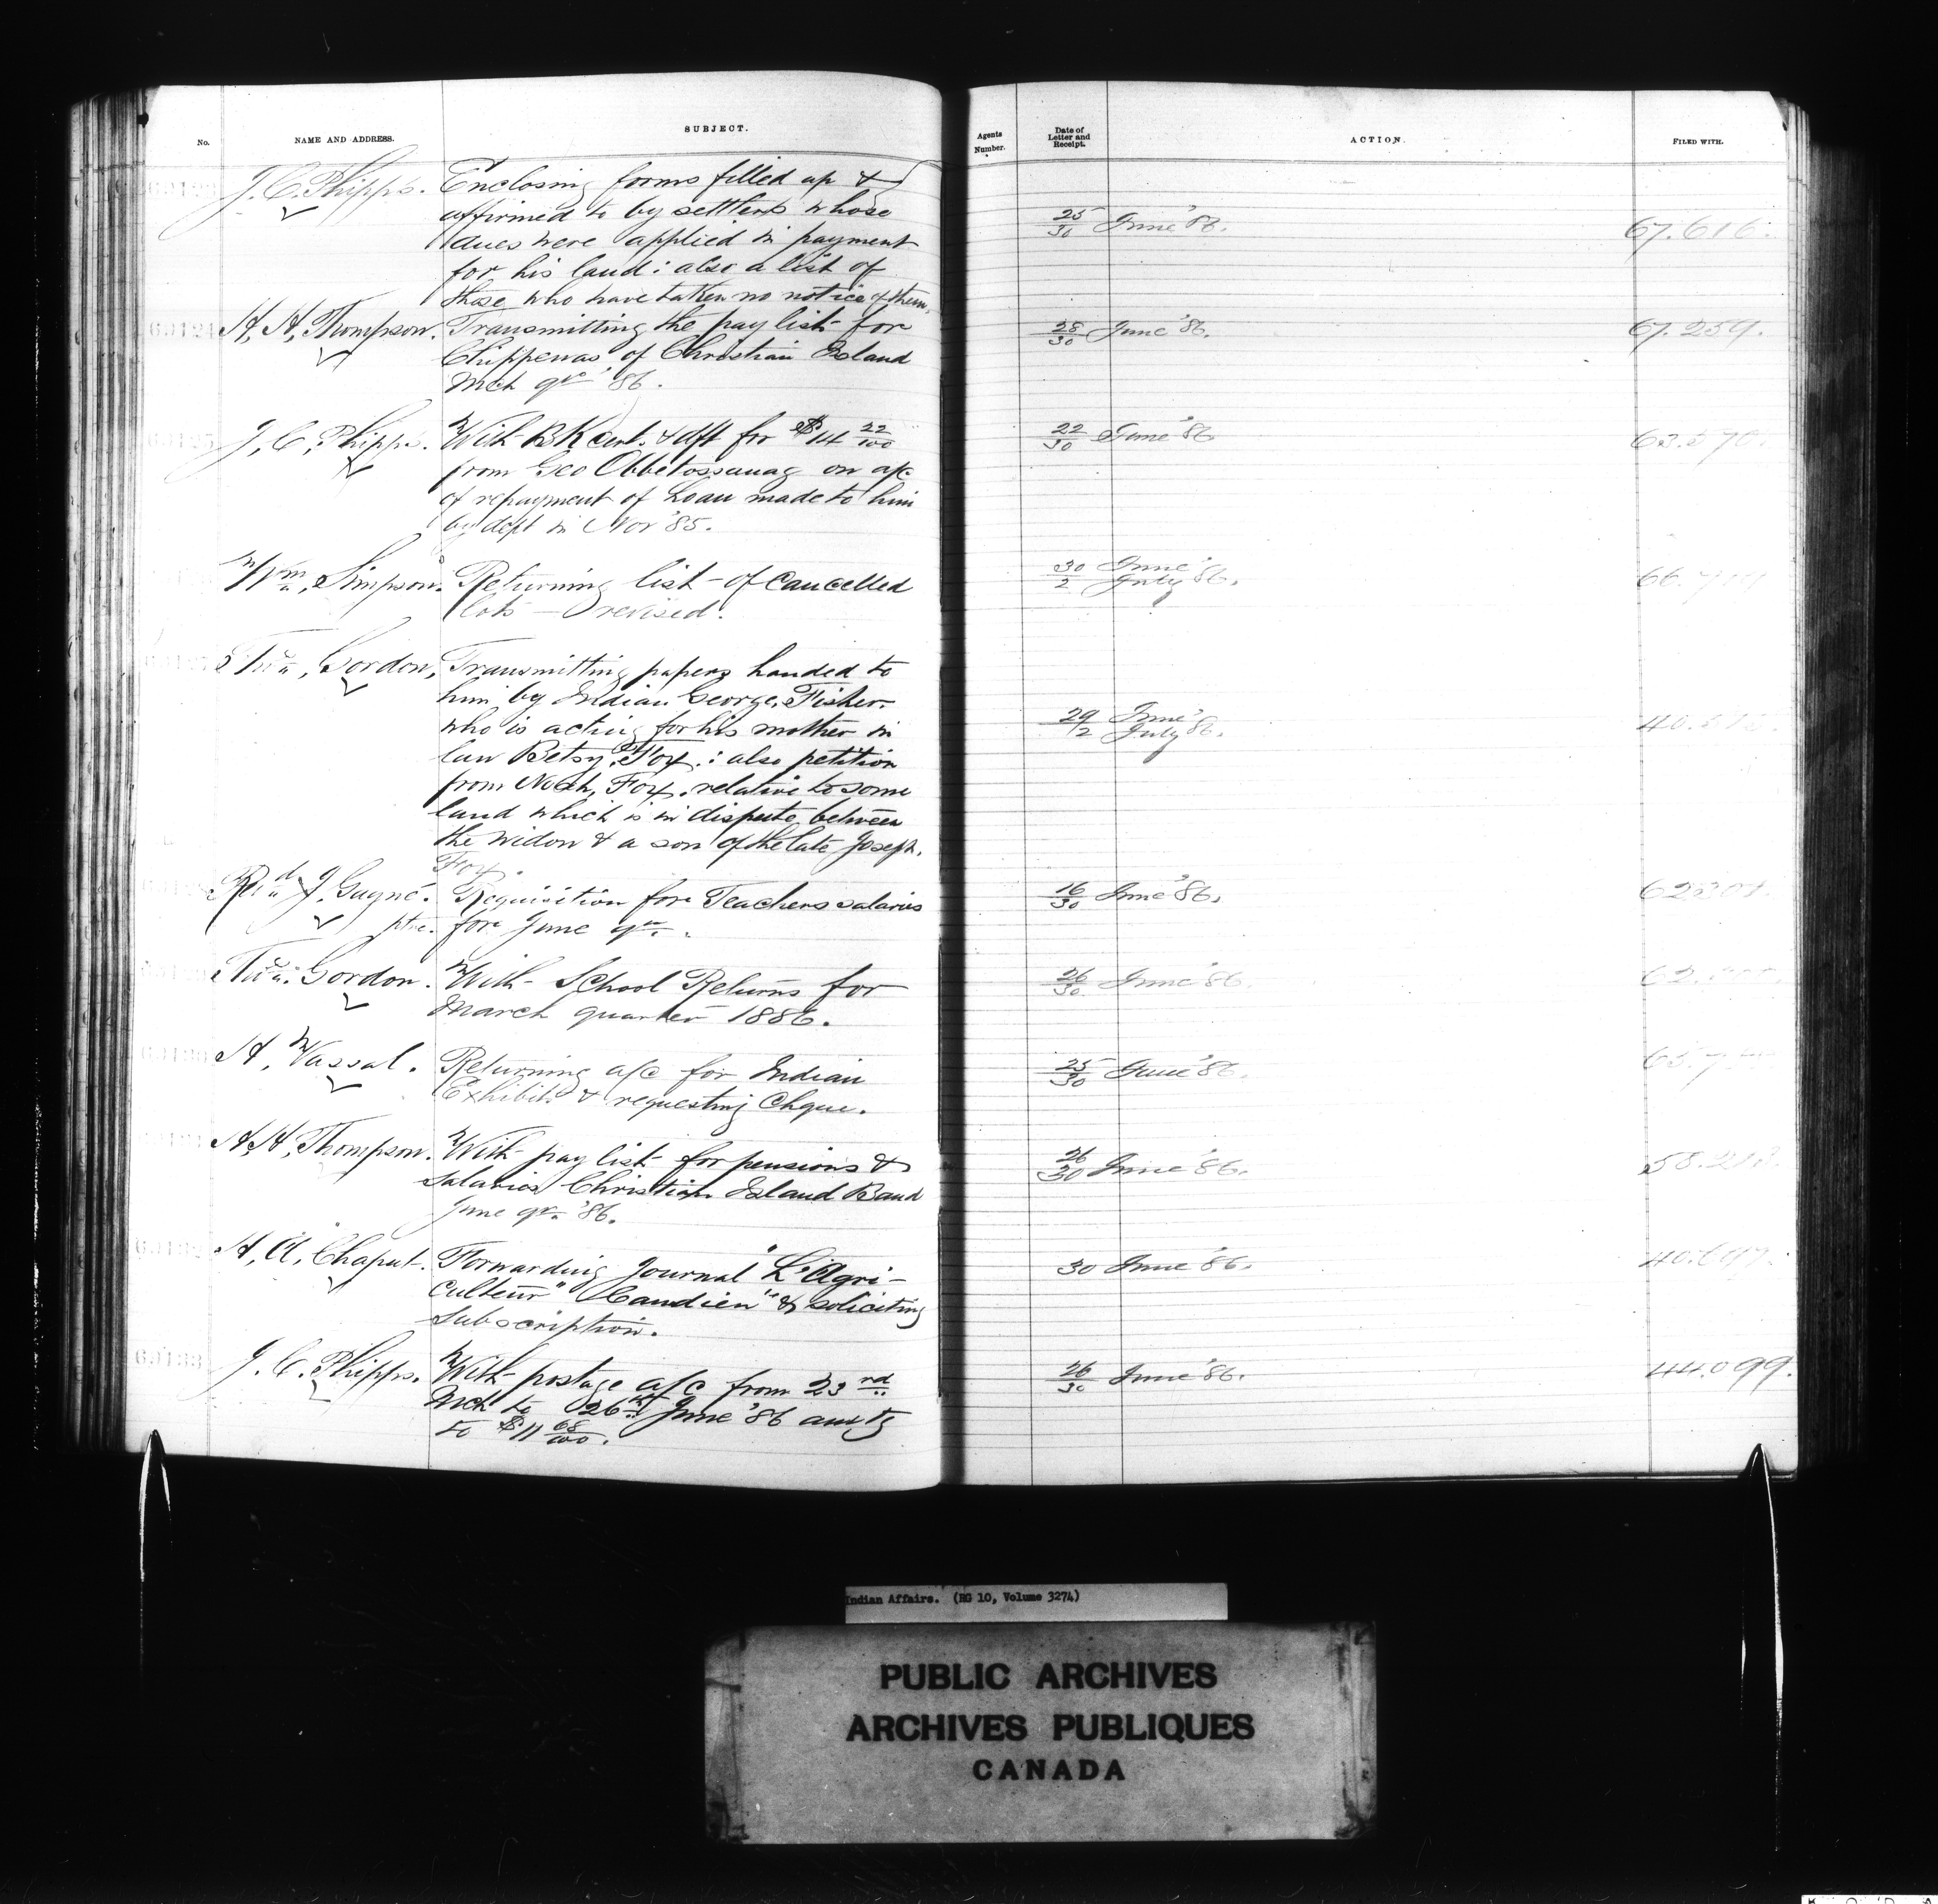 No. NAME AND ADDRESS. SUBJECT. Agents Number. Date of Letter and Receipt. ACTION. FILED WITH.
J. C. Phipps. Enclosing forms filled up &
affirmed to by settlers whose 25/30 June '86. 67.616.
dues were applied in payment
for his land: also a list of
those who have taken no notice of them.
H. H. Thompson. Transmitting the pay list for 28/30 June '86. 67.259.
Chippewas of Christian Island
Mch qr '86.
J. C. Phipps. With BK cert. & dft for $14 22/100 22/30 June '86 63.570.
from Geo Obbetossunag on a/c
of repayment of Loan made to him
by dept in Nov '85.
Wm. Simpson. Returning list of cancelled 30/2 June July '86.
lots — revised.
Thos. Gordon. Transmitting papers handed to
him by Indian George Fisher
who is acting for his mother in 29/2 June July '86.
law Betsy Fox: also petition
from Noah Fox, relative to some
land which is in dispute between
the widow & a son of the late Joseph
Fox.
Revd J. Gagné. Requisition for Teachers salaries 16/30 June '86.
ptre. for June qr.
Thos. Gordon. With School Returns for 26/30 June '86.
March quarter 1886.
H. Vassal. Returning a/c for Indian 25/30 June '86.
Exhibits & requesting Chque.
H. H. Thompson. With pay list for pensions & 26/30 June '86.
Salaries Christian Island Band
June qr. '86.
H. A. Chaput. Forwarding Journal "L'Agri- 30 June '86. 40.697.
culteur" Candien" & soliciting
Subscription.
69133 J. C. Phipps. With postage a/c from 23rd 26/30 June '86. 44.099.
Mch to 26th June '86 amtg
to $11 68/100.
Indian Affairs. (RG 10, Volume 3274)
PUBLIC ARCHIVES
ARCHIVES PUBLIQUES
CANADA